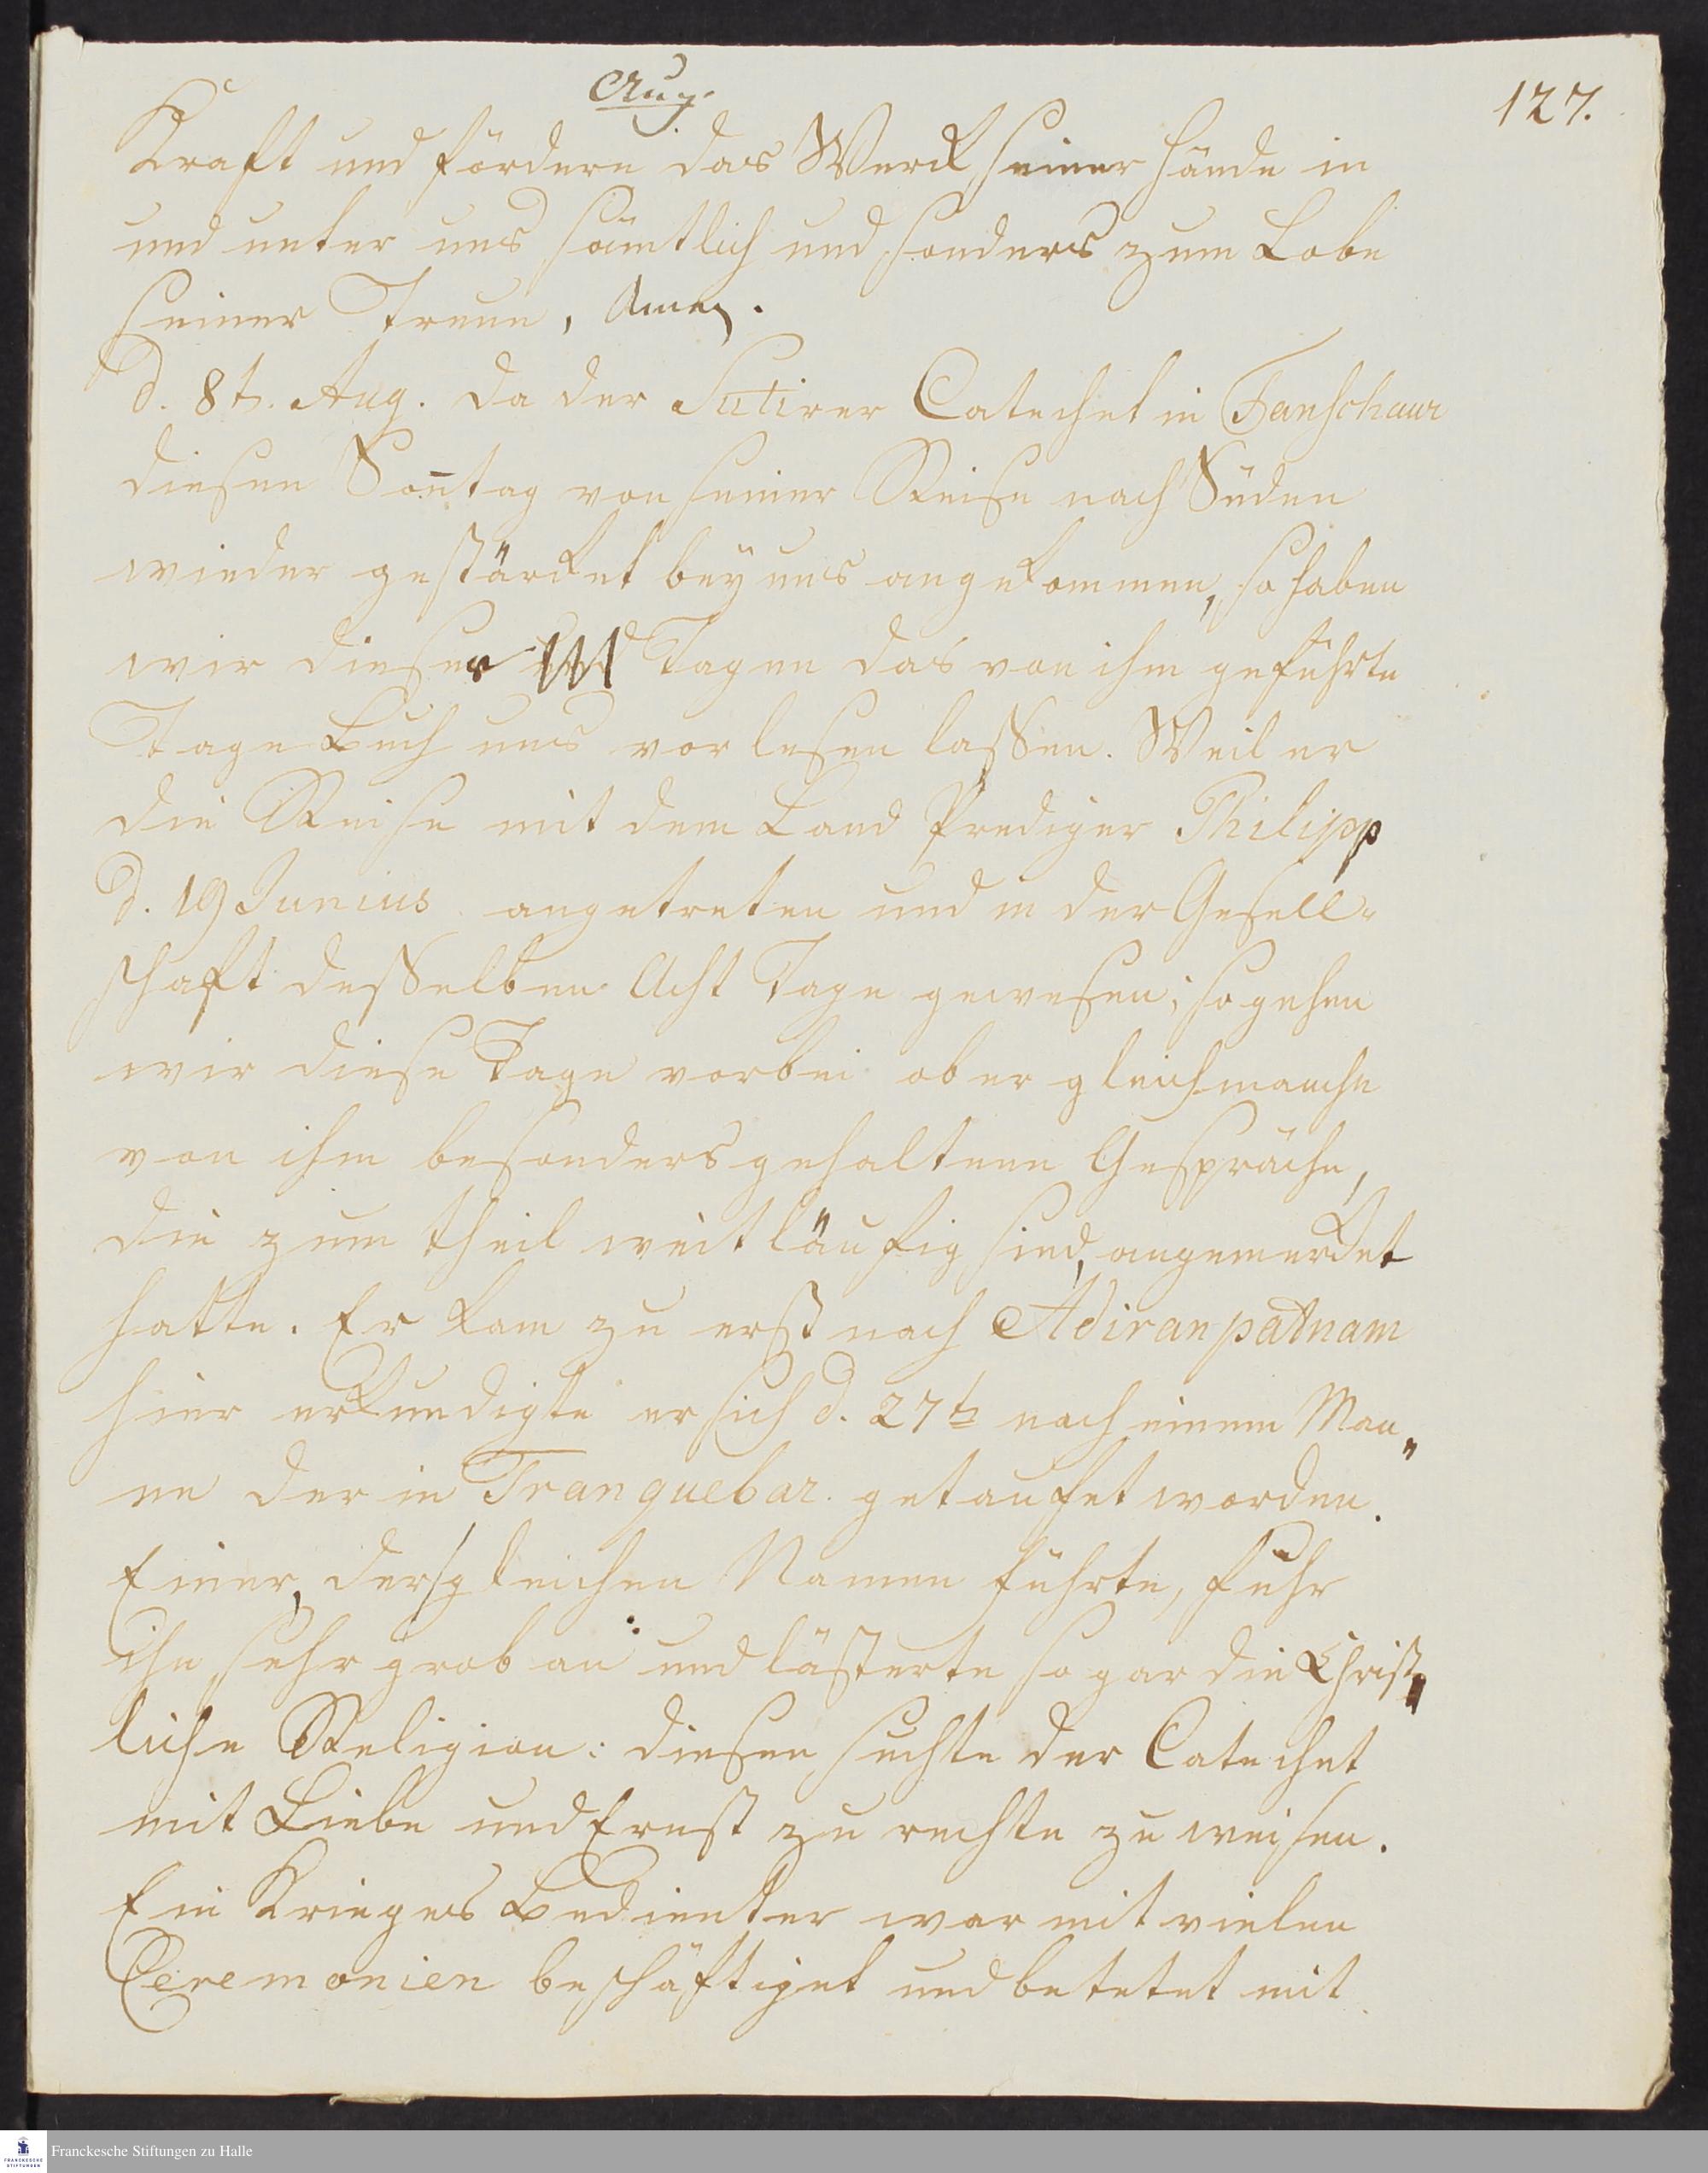 Aug.
127.
Kraft und fördere das Werck seiner Hände in
und unter uns sämtlich und sonders zum Lobe
seiner Treue, Amen.
d. 8t. Aug. da der Sutirer Catechet in Tanschaur
diesen Soñtag von seiner Reise nach Süden
wieder gestärcket beÿ uns angekommen, so haben
wir dieser Tagen das von ihm geführte
Tage Buch uns vorlesen lassen. Weil er
die Reise mit dem Land Prediger Philipp
d. 19 Junius angetreten und in der Gesell-
schaft desselben Acht Tage gewesen; so gehen
wir diese Tage vorbei ob er gleich manche
von ihm besonders gehaltene Gespräche,
die zum theil weitläufig sind, angemercket
hatte. Er kam zu erst nach Adiranpatnam
hier erkundigte er sich d. 27t. nach einem Man„
ne der in Tranquebar getaufet worden.
Einer, der gleichen Namen führte, fuhr
ihn sehr grob an und lästerte so gar die Christ„
liche Religion: diesen suchte der Catechet
mit Liebe und Ernst zu rechte zu weisen.
Ein Krieges Bedienter war mit vielen
Ceremonien beschäftiget und betetet mit
Franckesche Stiftungen zu Halle
FRANCKESCHE
STIFTUNGEN